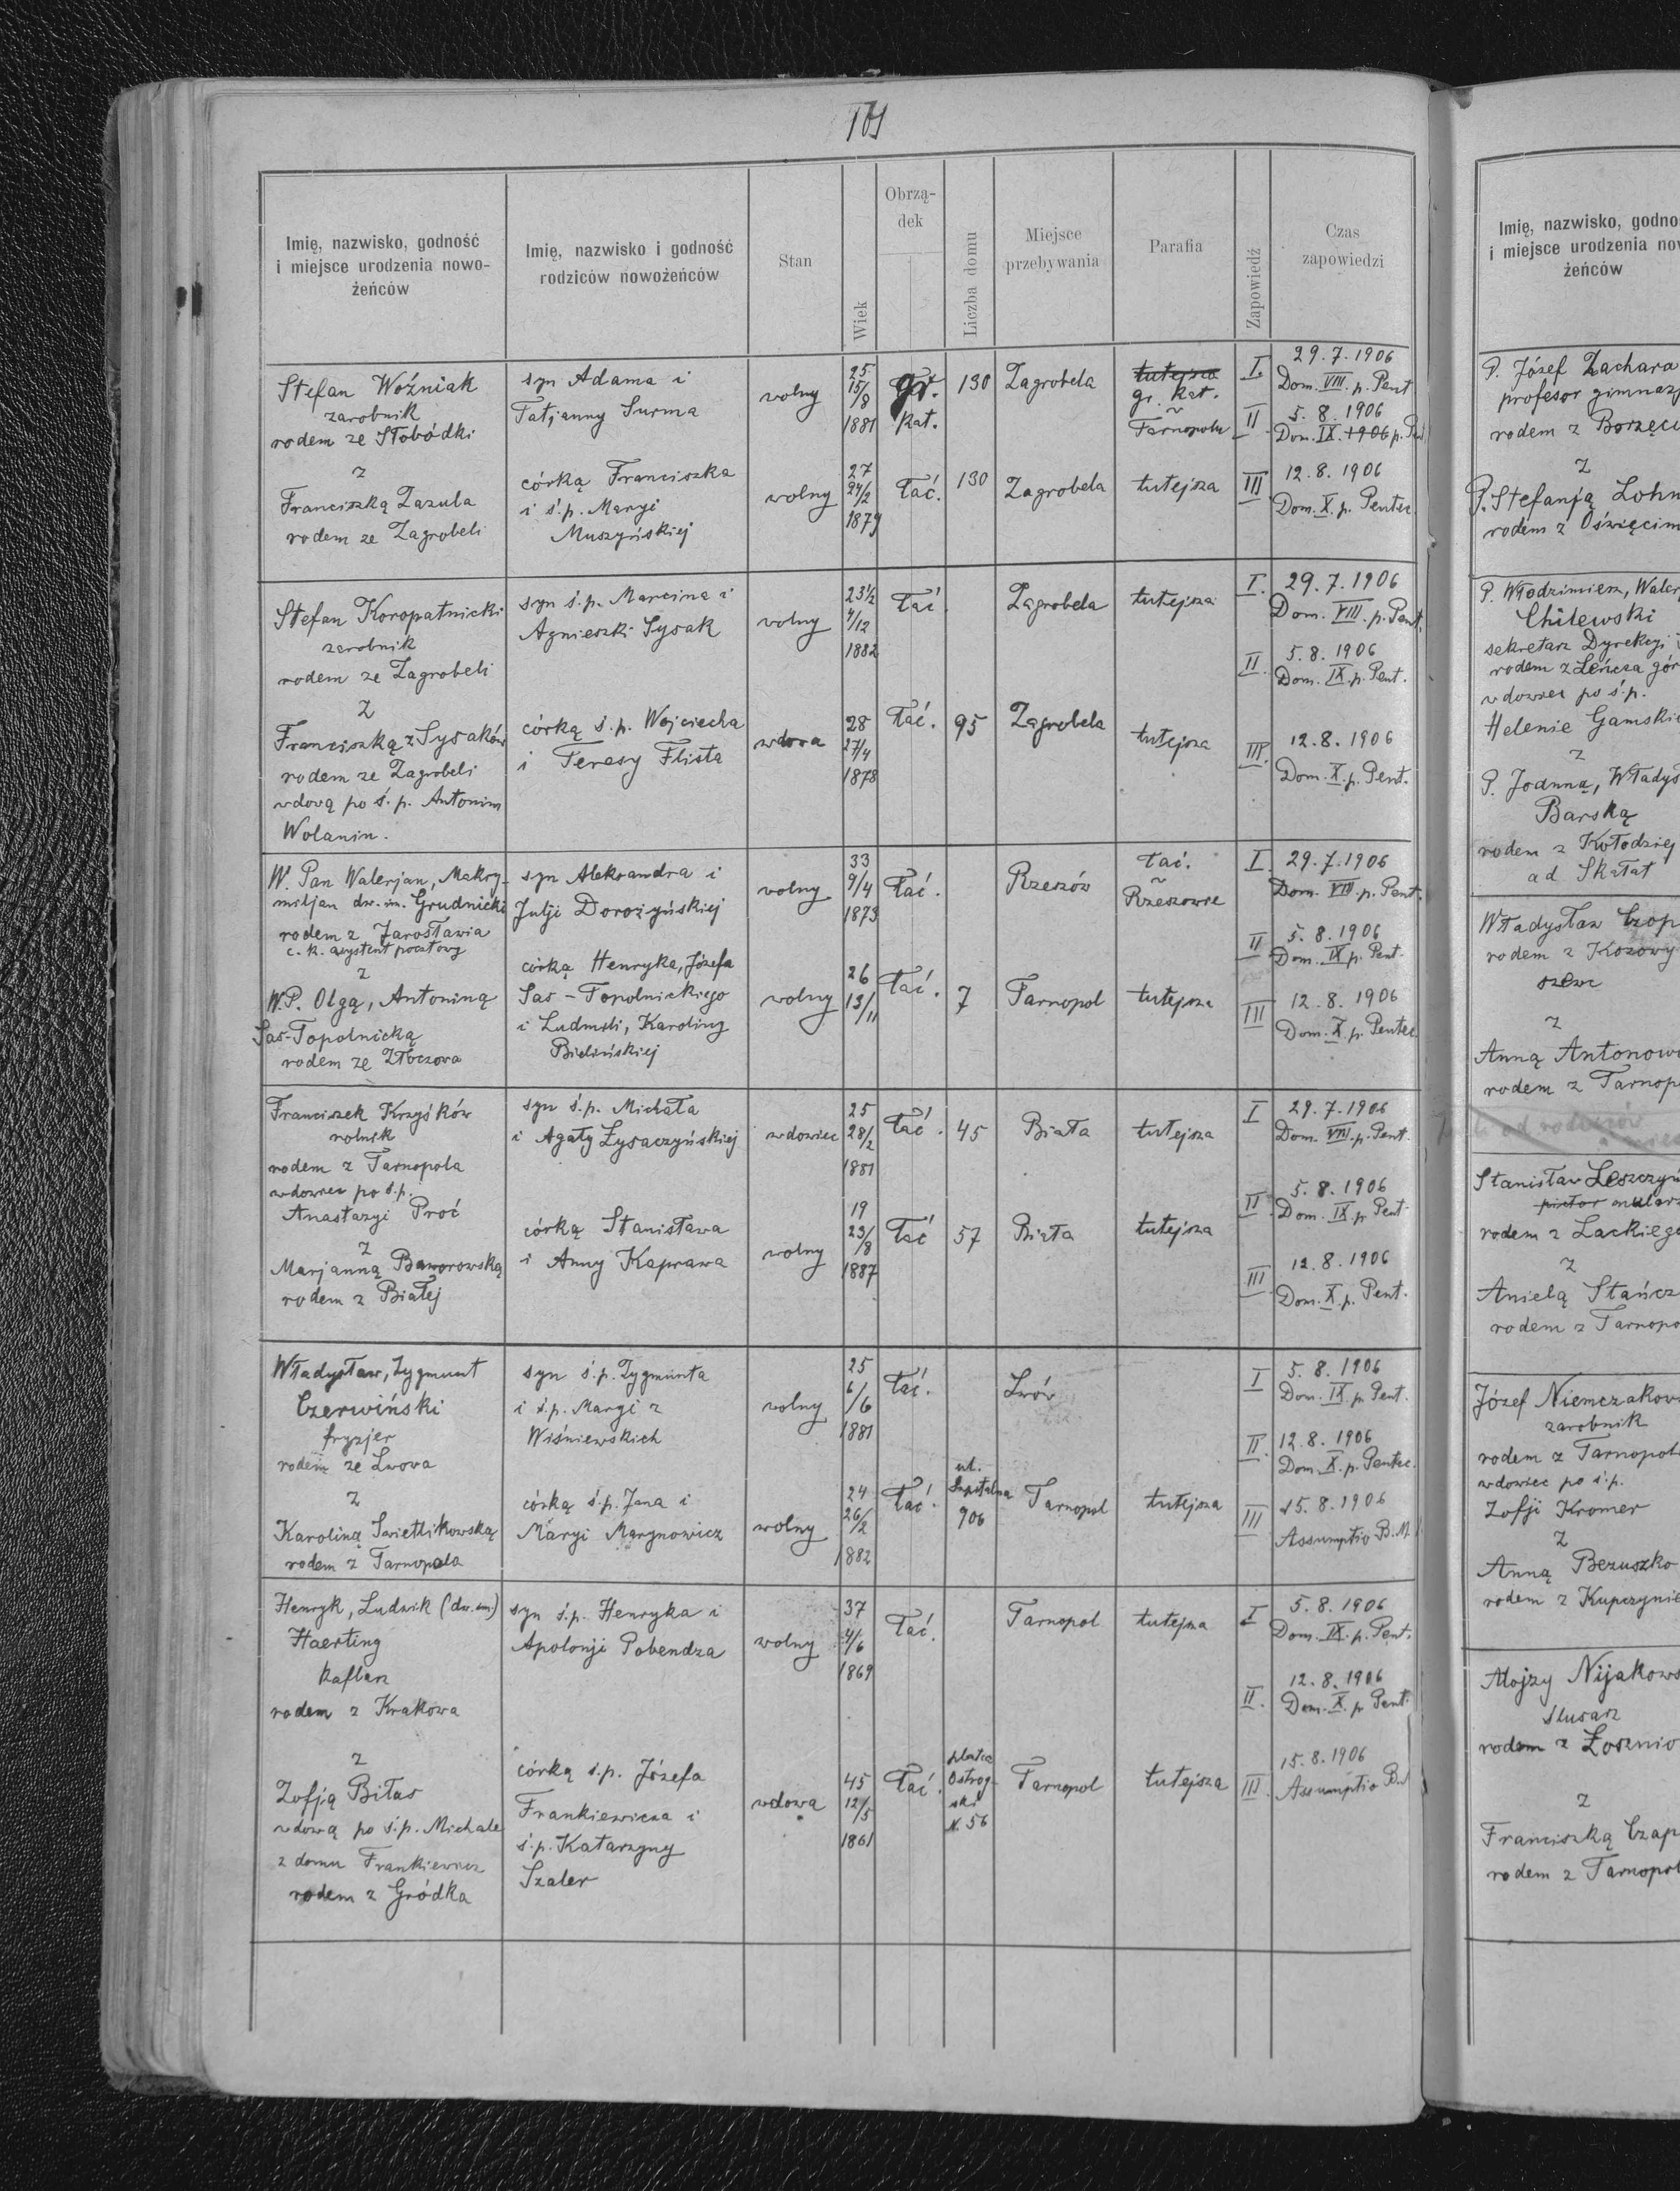 Imię, nazwisko, godność
i miejsce urodzenia nowo-
żeńców
Imię, nazwisko i godność
rodziców nowożeńców
Stan
Wiek
Obrzą-
dek
Liczba domu
Miejsce
przebywania
Parafia
Zapowiedź
Czas
zapowiedzi
Stefan Woźniak
zarobnik
rodem ze Słobódki
z
Franciszką Zazula
rodem ze Zagrobeli
syn Adama i
Tatjanny Surma
córką Franciszka
i ś.p. Maryi
Muszyńskiej
wolny
wolny
25
15/8
1881
27
24/2
1879
gr.
kat.
łać.
130
130
Zagrobela
Zagrobela
tutejsza
gr. kat.
~
Tarnopolu
tutejsza
I.
29.7.1906
Dom. VIII. p. Pent
II
5.8.1906
Dom. IX. 1906 p. Pent
III
12.8.1906
Dom. X. p. Pentec.
Stefan Koropatnicki
zarobnik
rodem ze Zagrobeli
z
Franciszką z Sysaków
rodem ze Zagrobeli
wdową po ś.p. Antonim
Wolanin.
syn ś.p. Marcina i
Agnieszki Sysak
córką ś.p. Wojciecha
i Teresy Flista
wolny
wdowa
23 1/2
4/12
1882
28
27/4
1878
łać.
łać.
95
Zagrobela
Zagrobela
tutejsza
tutejsza
I.
29.7.1906
Dom. VIII. p. Pent.
II.
5.8.1906
Dom. IX. p. Pent.
III.
12.8.1906
Dom. X. p. Pent.
W. Pan Walerjan, Maksy-
miljan dw. im. Grudnicki
rodem z Jarosławia
c. k. asystent pocztowy
z
W.P. Olgą, Antoniną
Sas-Topolnicką
rodem ze Złoczowa
syn Aleksandra i
Julji Dorożyńskiej
córką Henryka, Józefa
Sas-Topolnickiego
i Ludmili, Karoliny
Bielińskiej
wolny
wolny
33
9/4
1873
26
13/11
łać.
łać.
7
Rzeszów
Tarnopol
łać.
~
Rzeszowie
tutejsza
I.
29.7.1906
Dom. VIII. p. Pent.
II
5.8.1906
Dom. IX p. Pent.
III
12.8.1906
Dom. X. p. Pentec.
Franciszek Krzyśków
rolnik
rodem z Tarnopola
wdowiec po ś.p.
Anastazyi Proć
z
Marjanną Baworowską
rodem z Białej
syn ś.p. Michała
i Agaty Łysaczyńskiej
córką Stanisława
i Anny Kaprawa
wdowiec
wolny
25
28/2
1881
19
23/8
1887
łać.
łać
45
57
Biała
Biała
tutejsza
tutejsza
I
29.7.1906
Dom. VIII. p. Pent.
II
5.8.1906
Dom. IX. p. Pent.
III
12.8.1906
Dom. X. p. Pent.
Władysław, Zygmunt
Czerwiński
fryzjer
rodem ze Lwowa
z
Karoliną Swietlikowską
rodem z Tarnopola
syn ś.p. Zygmunta
i ś.p. Maryi z
Wiśniewskich
córką ś.p. Jana i
Maryi Marynowicz
wolny
wolny
25
6/6
1881
24
26/2
1882
łać.
łać.
ul.
Szpitalna
906
Lwów
Tarnopol
tutejsza
I
5.8.1906
Dom. IX. p. Pent.
II.
12.8.1906
Dom. X. p. Pentec.
III
15.8.1906
Assumptio B.M.
Henryk, Ludwik (dw. im)
Haerting
kaflarz
rodem z Krakowa
z
Zofją Bilas
wdową po ś.p. Michale
z domu Frankiewicz
rodem z Gródka
syn ś.p. Henryka i
Apolonji Pobendza
córką ś.p. Józefa
Frankiewicza i
ś.p. Katarzyny
Szaler
wolny
wdowa
37
4/6
1869
45
12/5
1861
łać.
łać.
Ostrog-
ski
N. 56
Tarnopol
Tarnopol
tutejsza
tutejsza
I
5.8.1906
Dom. IX. p. Pent.
II.
12.8.1906
Dom. X. p. Pent.
III.
15.8.1906
Assumptio
Imię, nazwisko, godno
i miejsce urodzenia no
żeńców
P. Józef Zachara
profesor gimnazj
rodem z Borzęci
z
P. Stefanją Lohn
rodem z Oświęcim
P. Włodzimierz, Waler
Chilewski
sekretarz Dyrekcyi
rodem z Leńcza gór
wdowiec po ś.p.
Helenie Gamskie
z
P. Joanną, Władys
Barską
rodem z Kołodziej
ad Skałat
Władysław Czop
rodem z Kozowy
szewc
z
Anną Antonowi
rodem z Tarnop
od rodziców
Stanisław Leszczyń
mularz
rodem z Lackiego
z
Anielą Stańcz
rodem z Tarnopo
Józef Niemczakow
zarobnik
rodem z Tarnopol
wdowiec po ś.p.
Zofji Kromer
z
Anną Bezuszko
rodem z Kupczynie
Alojzy Nijakows
slusarz
rodem z Łosznio
z
Franciszką Czap
rodem z Tarnopol